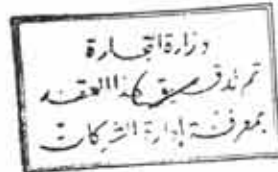 وزارة التجارة
تم تدقيق هذا العقد
بمعرفة إدارة الشركات